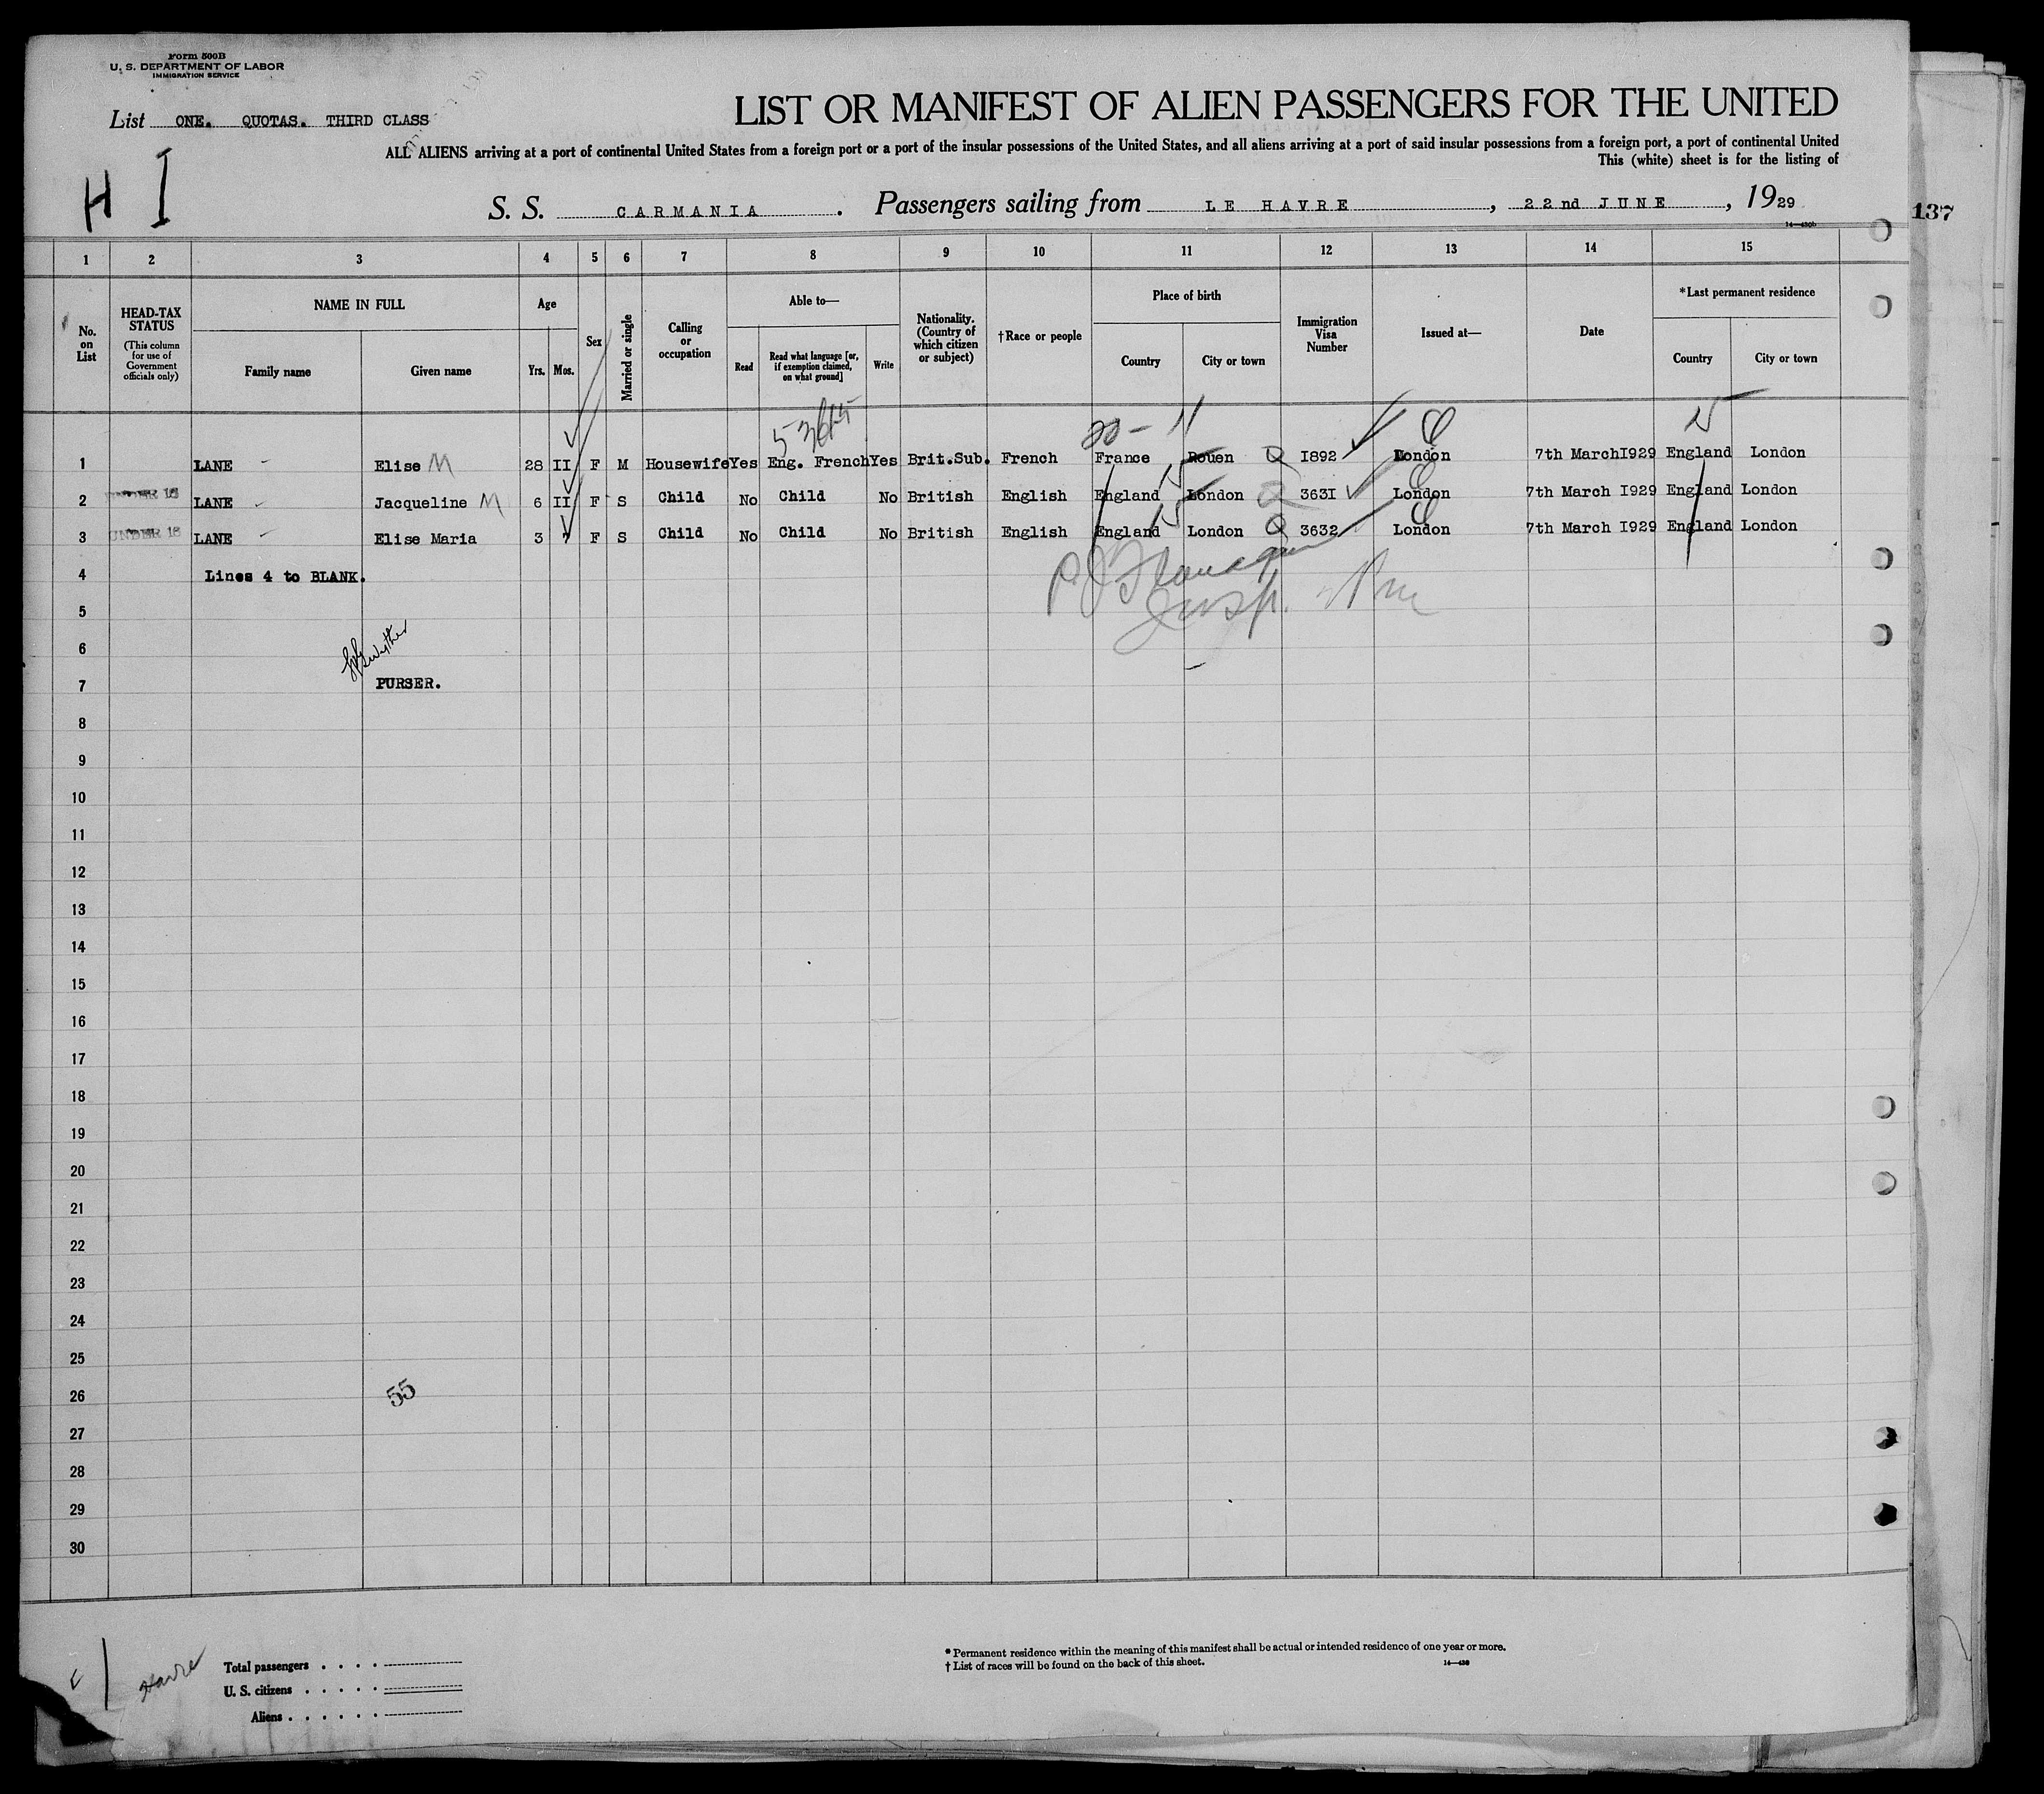 Form 500B
U. S. DEPARTMENT OF LABOR
IMMIGRATION SERVICE
List ONE. QUOTAS. THIRD CLASS
LIST OR MANIFEST OF ALIEN PASSENGERS FOR THE UNITED
ALL ALIENS arriving at a port of continental United States from a foreign port or a port of the insular possessions of the United States, and all aliens arriving at a port of said insular possessions from a foreign port, a port of continental United
This (white) sheet is for the listing of
H I
S. S. CARMANIA. Passengers sailing from LE HAVRE, 22nd JUNE, 1929
137
1 2 3 4 5 6 7 8 9 10 11 12 13 14 15
No. on List
HEAD-TAX STATUS (This column for use of Government officials only)
NAME IN FULL
Family name Given name
Age
Yrs. Mos.
Sex
Married or single
Calling or occupation
Able to—
Read Read what language [or, if exemption claimed, on what ground] Write
Nationality. (Country of which citizen or subject)
†Race or people
Place of birth
Country City or town
Immigration Visa Number
Issued at—
Date
*Last permanent residence
Country City or town
1 LANE Elise M 28 II F M Housewife Yes Eng. French Yes Brit.Sub. French France Rouen Q I892 London 7th March I929 England London
2 LANE Jacqueline M 6 II F S Child No Child No British English England London Q 363I London 7th March I929 England London
3 UNDER 16 LANE Elise Maria 3 7 F S Child No Child No British English England London Q 3632 London 7th March I929 England London
4 Lines 4 to BLANK.
5
6
7 PURSER.
8
9
10
11
12
13
14
15
16
17
18
19
20
21
22
23
24
25
26
55
27
28
29
30
Havre
Total passengers . . . .
U. S. citizens . . . . .
Aliens . . . . . .
* Permanent residence within the meaning of this manifest shall be actual or intended residence of one year or more.
† List of races will be found on the back of this sheet.
14—430